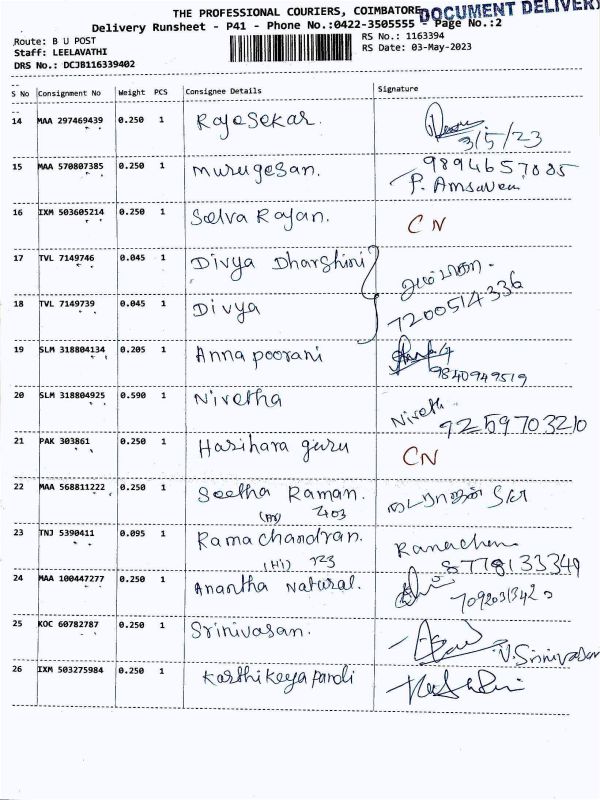 THE PROFESSIONAL COURIERS, COIMBATORE
DOCUMENT DELIVERY
Delivery Runsheet - P41 - Phone No.:0422-3505555 - Page No.:2
Route: B U POST
RS No.: 1163394
Staff: LEELAVATHI
RS Date: 03-May-2023
DRS No.: DCJB116339402
S No Consignment No Weight PCS Consignee Details Signature
14 MAA 297469439 0.250 1 Rajasekar.
3/5/23
15 MAA 570807385 0.250 1 Murugesan. 9894657085
P. Amsaveni
16 IXM 503605214 0.250 1 Selva Rajan. CN
17 TVL 7149746 0.045 1 Divya Dharshini
18 TVL 7149739 0.045 1 Divya 7200514336
19 SLM 318804134 0.205 1 Annapoorani
9840949519
20 SLM 318804925 0.590 1 Nivetha Niveth
9259703210
21 PAK 303861 0.250 1 Harihara guru CN
22 MAA 568811222 0.250 1 Seetha Raman.
403
23 TNJ 5390411 0.095 1 Rama chandran. Ramachan
(H1) 123 8778133349
24 MAA 100447277 0.250 1 Anantha Natural.
25 KOC 60782787 0.250 1 Srinivasan.
V. Srinivasan
26 IXM 503275984 0.250 1 Karthikeya pandi